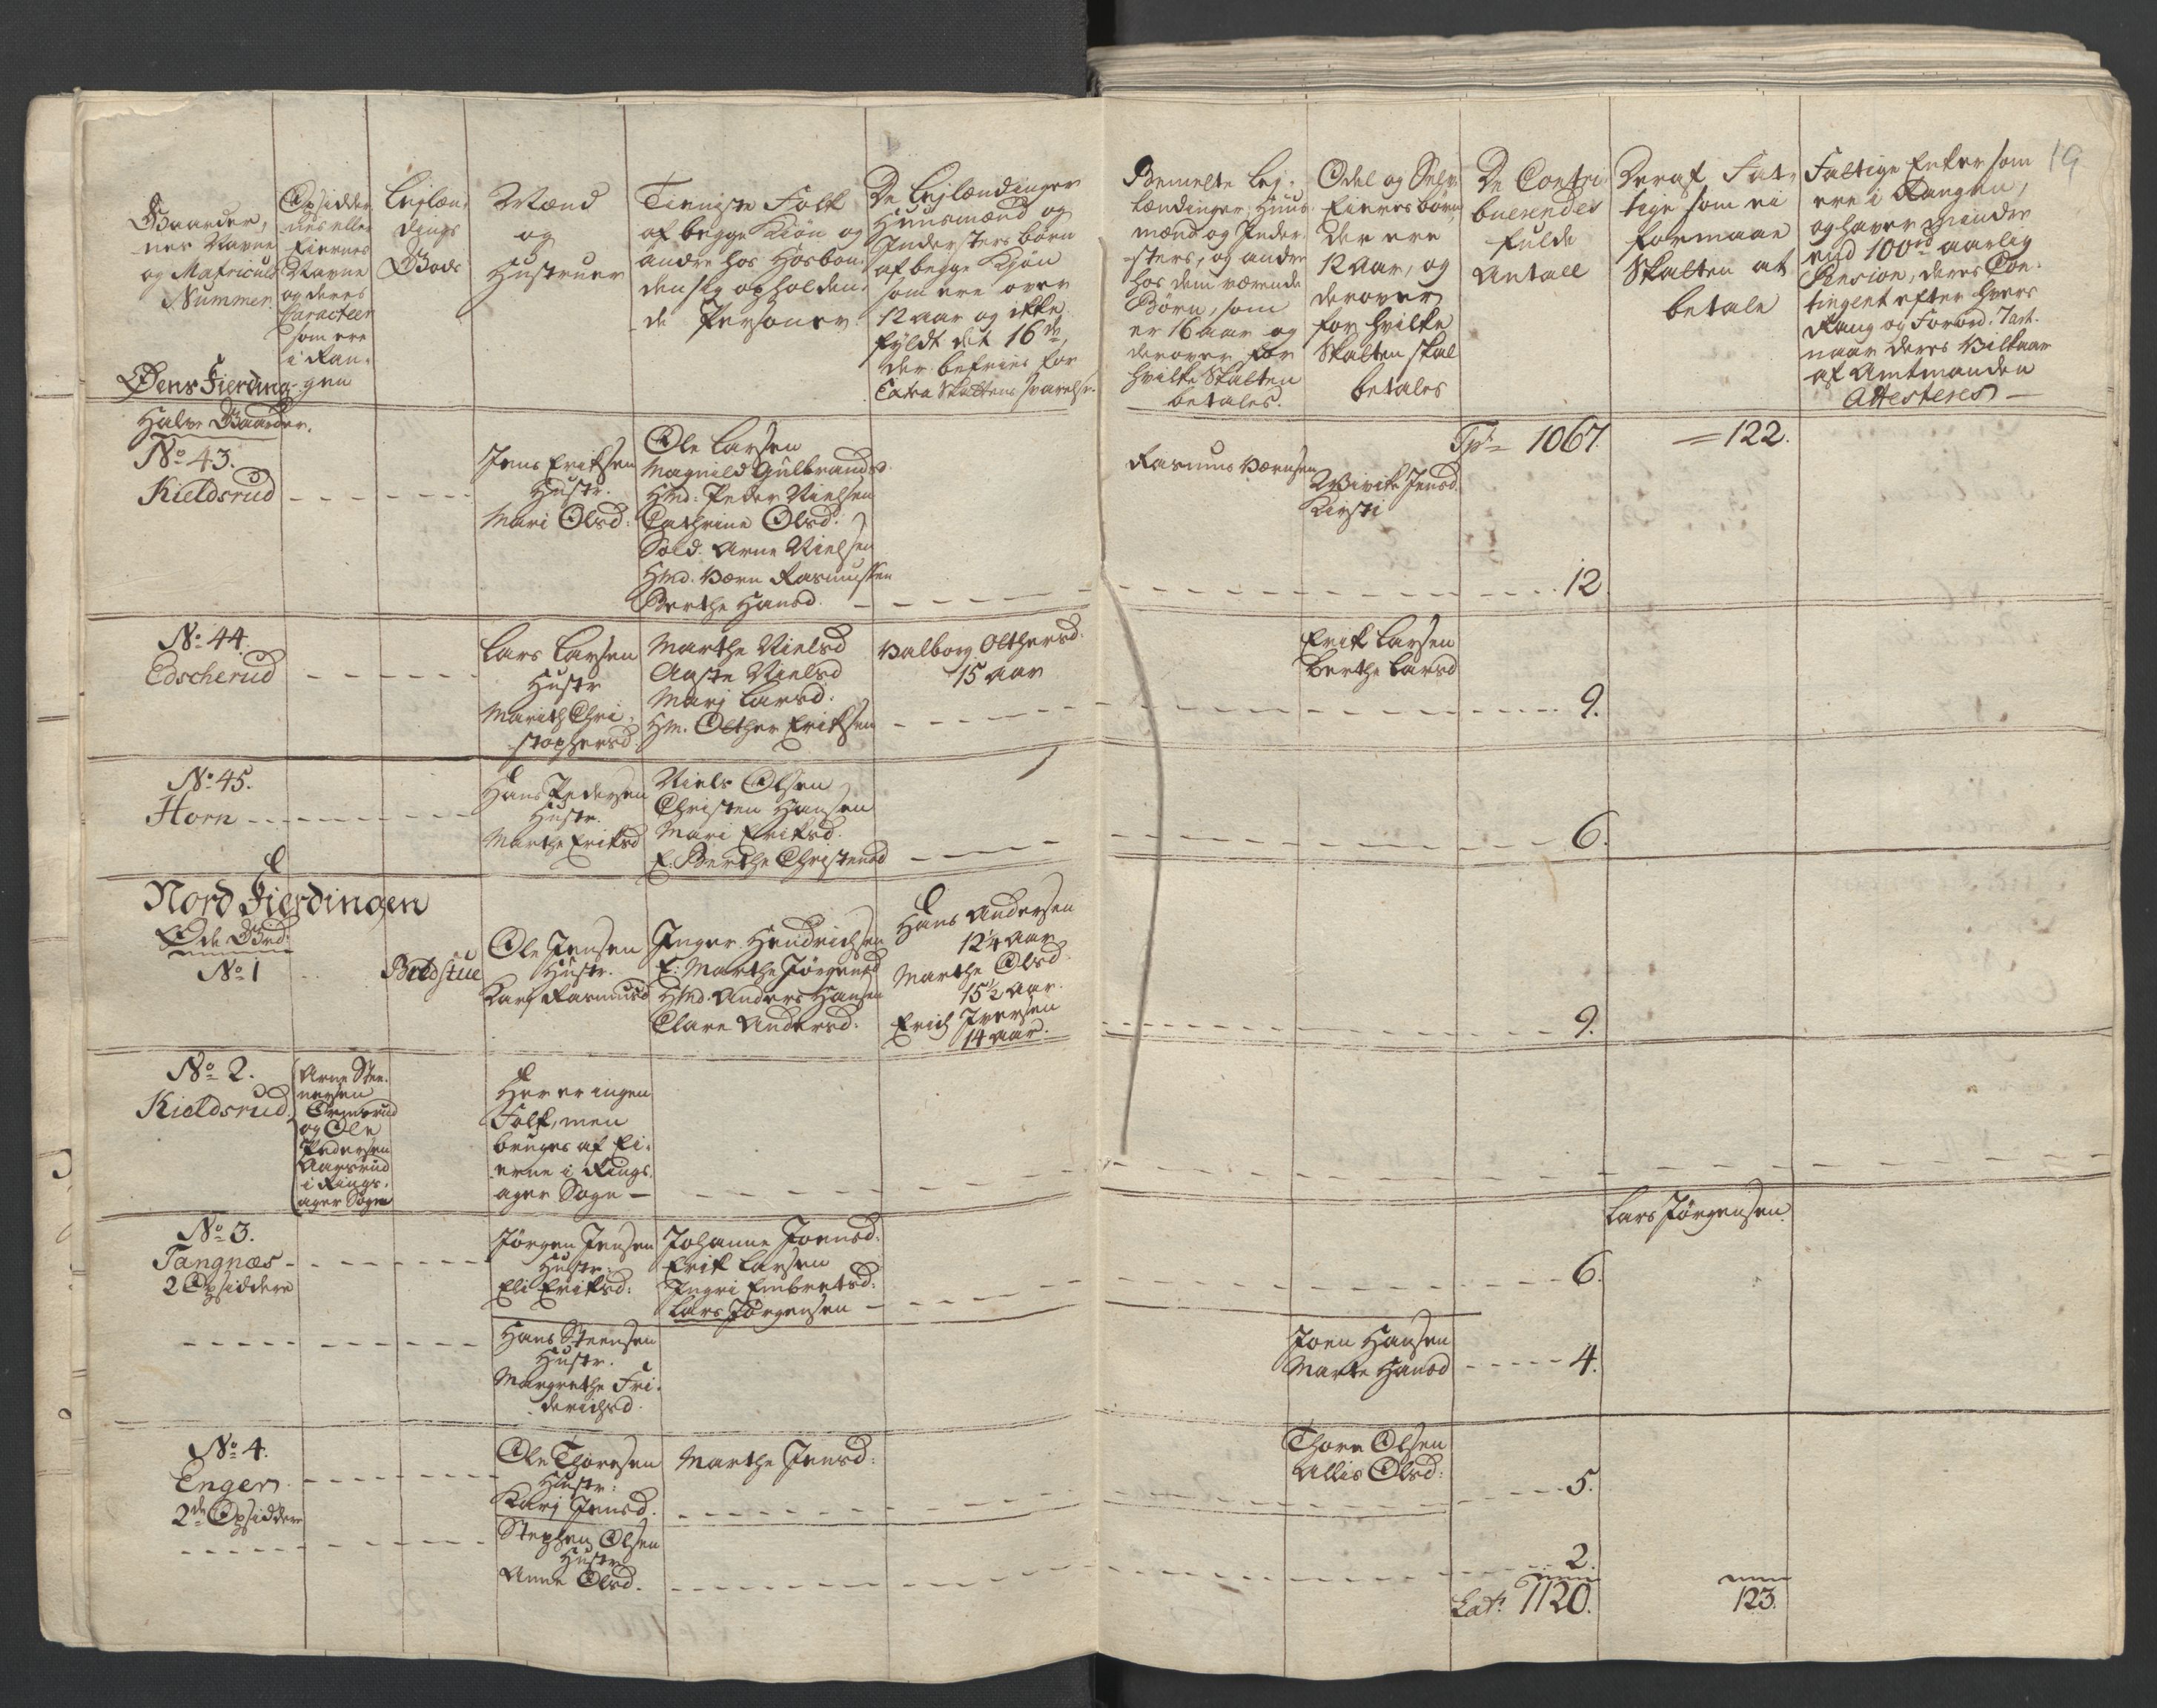 19
Gaarder,
nes Navne
og Matricul
Nummer.
Opsidder
nes eller
Eiernes
Navne
og deres
Caracteer
som ere
i Ran-
gen
Lejlæn-
dings
Bøds
Mænd
og
Hustruer
Tieniste Folk
af begge Kiøn og
andre hos Hosbon-
den sig opholden-
de Personer.
De Lejlændinger
Huusmænd og
Indersters børn
af begge Kjøn
som ere over
12 aar og ikke
fyldt det 16de,
der befries for
Extra Skattens svarelse.
Bemelte Lej-
lændinger, Huus
mænd og Inder-
sters, og andre
hos dem værende
Børn, som
er 16 aar og
derover for
hvilke Skatten
betales.
Odel og Selv
Eieres børn
der ere
12 Aar, og
derover
for hvilke
Skatten skal
betales
De Contri-
buerendes
fulde
Antall
Deraf Fat-
tige som ei
formaae
Skatten at
betale
Fattige Enker som
ere i Rangen,
og haver mindre
end 100rd aarlig
Pension, deres Con-
tingent efter hvers
Rang og Forord. 7 art.
naar deres Vilkaar
af Amtmanden
Attesteres
Øens Fierding
Halve Gaarder.
Tpt = 1067.
= 122.
No 43.
Kieldsrud
Jens Eriksen
Hustr.
Mari Olsd:
Ole Larsen
Magnild Gulbrandsd.
Hmd: Peder Nielsen
Cathrine Olsd:
Sold. Arne Nielsen
Hmd. Bærn Rasmussen
Berthe Hansd.
Rasmus Bærnsen
Wivike Jensd.
Kirsti
12
No 44.
Edscherud
Lars Larsen
Hustr
Marith Chri-
stophersd
Marthe Nielsd
Aaste Nielsd
Marj Larsd:
Hm. Olther Eriksen
Valborg Olthersd:
15 aar
Erik Larsen
Berthe Larsd
9.
No 45.
Horn
Hans Pedersen
Hustr.
Marthe Eriksd
Niels Olsen
Christen Hansen
Mari Eriksd.
E. Berthe Christensd
6.
Nord Fierdingen
Øde Grd:
No 1
Bredstue
Ole Jensen
Hustr.
Karj Rasmusd
Inger Hendrichsen
E. Marthe Jørgensd
Hmd. Anders Hansen
Clare Andersd:
Hans Andersen
12 1/4 aar
Marthe Olsd
15 1/2 aar.
Erich Iversen
14 aar.
9.
No 2.
Kieldsrud
Arne Ste-
nersen
Ormsrud
og Ole
Pedersen
Aarsrud
i Rings-
ager Sogn
Her er ingen
Folk, men
bruges af Ei-
erne i Rings-
ager Sogn
No 3.
Tangnæs
2 Opsiddere
Jørgen Jensen
Hustr:
Eli Eriksd:
Johanne Joensd:
Erik Larsen
Ingri Embretsd:
Lars Jørgensen
6.
Lars Jørgensen.
Hans Steensen
Hustr.
Margrethe Fri-
derichsd.
Joen Hansen
Marte Hansd
4.
No 4.
Enger
2de Opsiddere
Ole Thoresen
Hustr:
Karj Jensd.
Marthe Jensd:
Thore Olsen
Allis Olsd:
5.
Stephen Olsen
Hustr
Anne Olsd.
2.
Lats. 1120.
123.